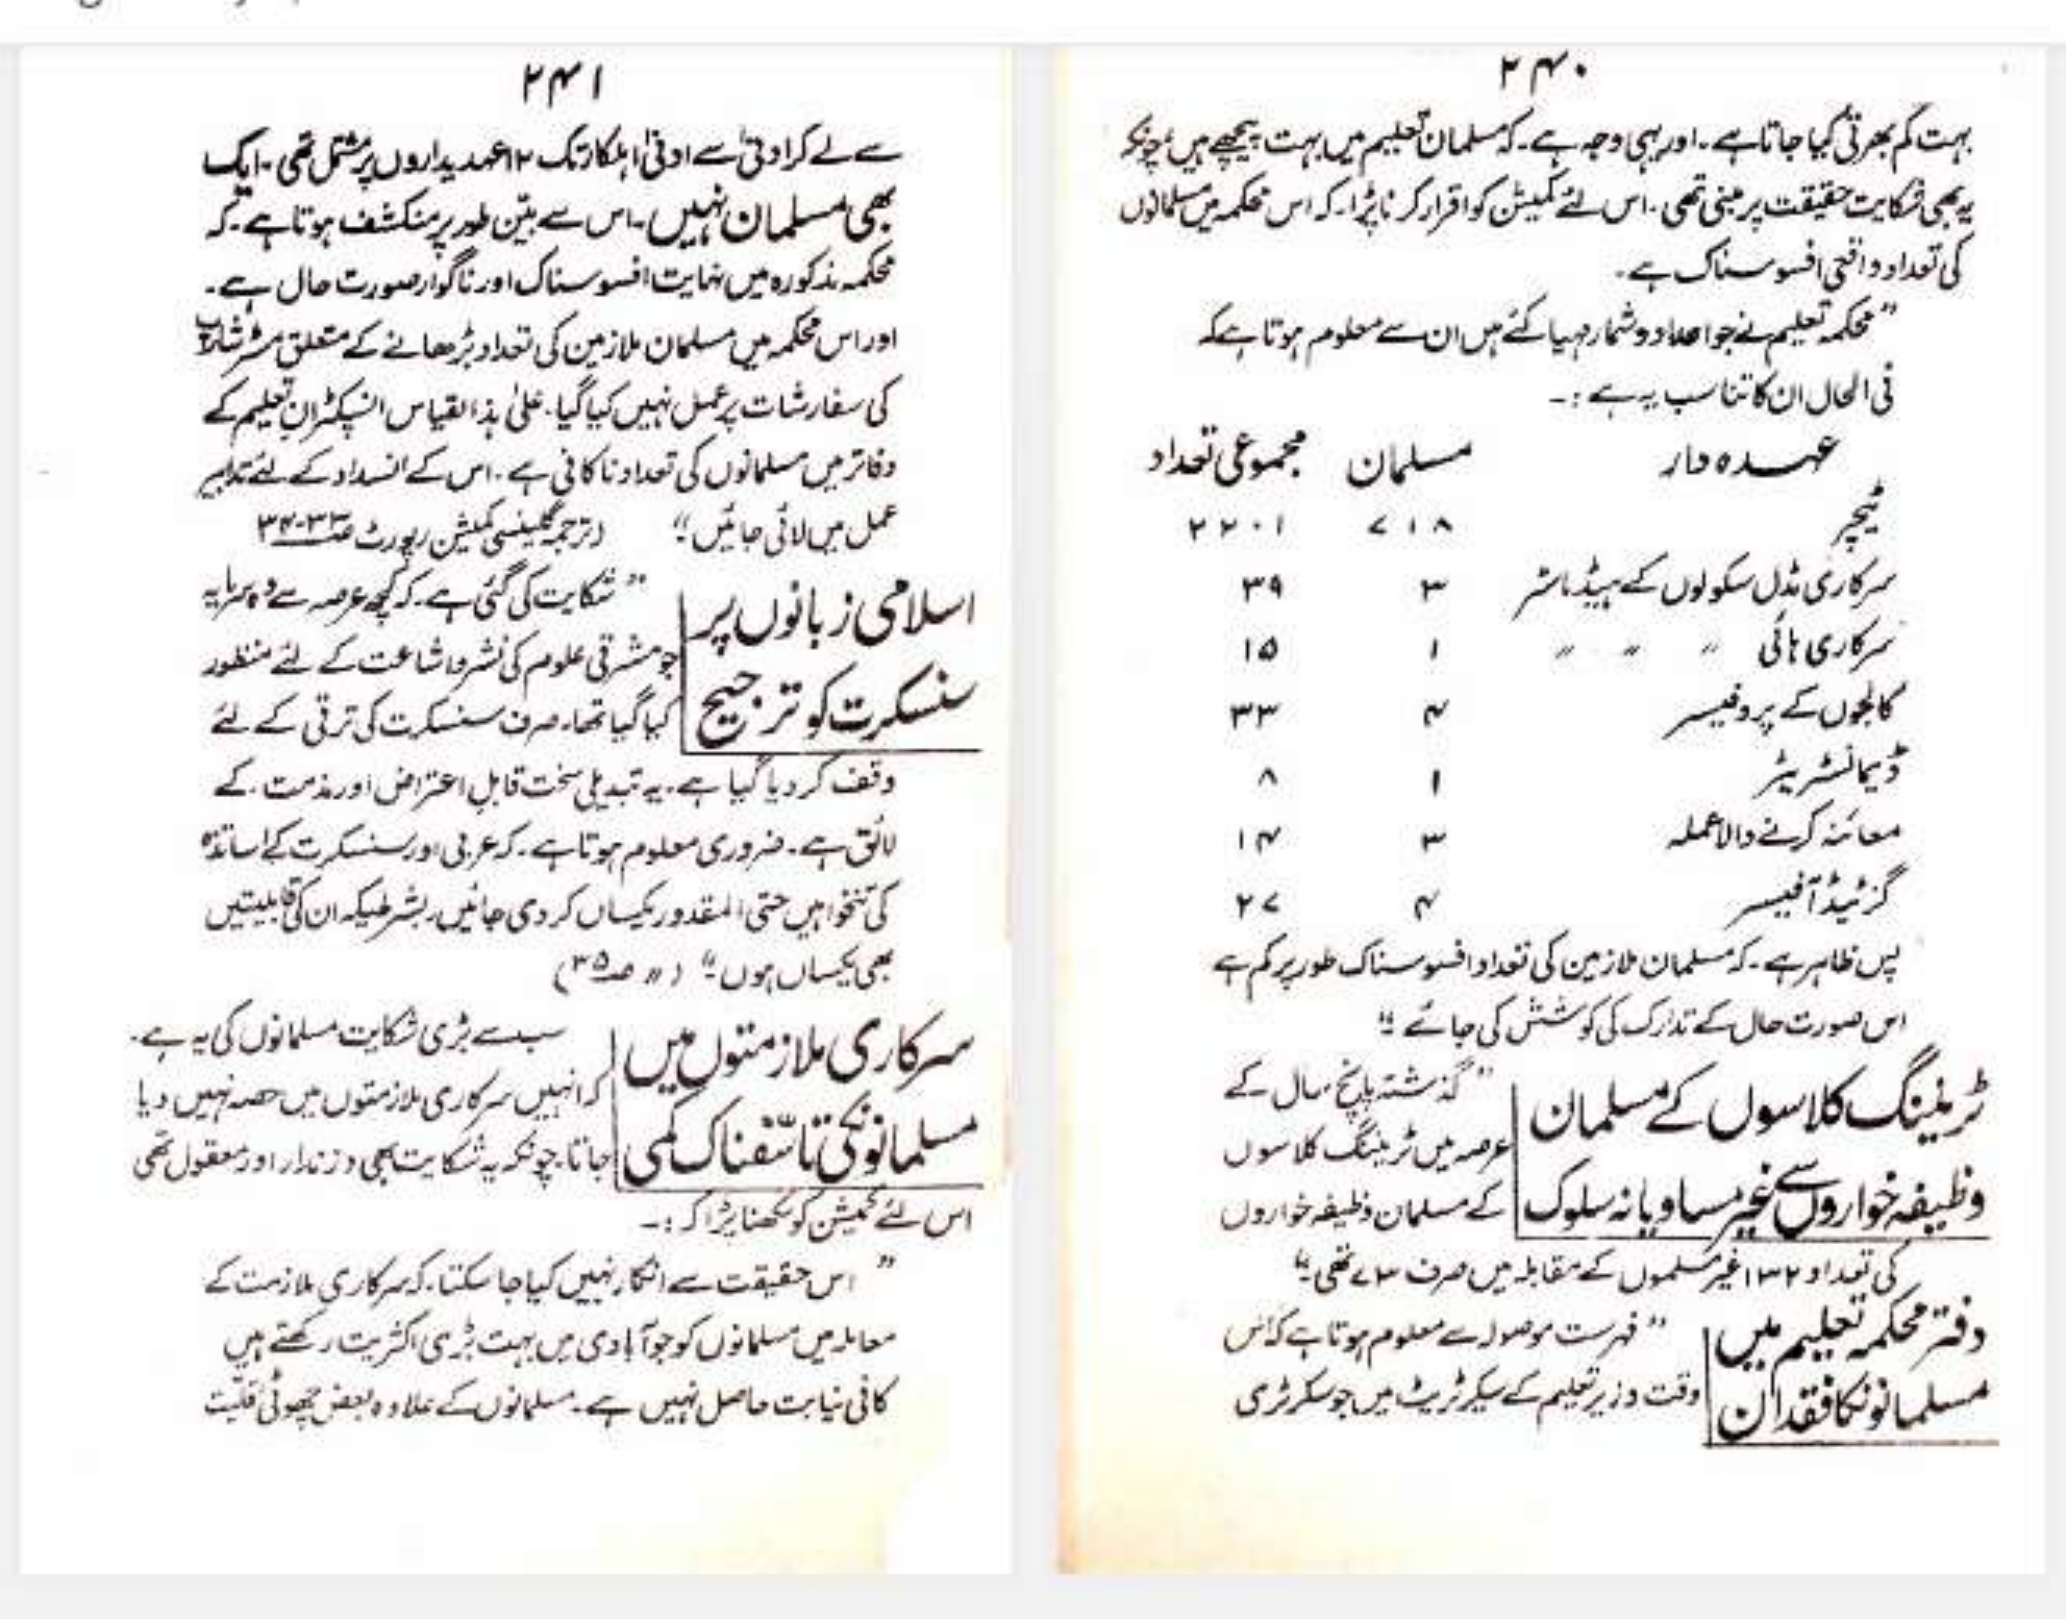 ۲۴۰
بہت کم بھرتی کیا جاتا ہے۔ اور یہی وجہ ہے۔ کہ مسلمان تعلیم میں بہت پیچھے ہیں، چونکہ
یہ بھی شکایت حقیقت پر مبنی تھی۔ اس لئے کمیشن کو اقرار کرنا پڑا۔ کہ اس محکمہ میں مسلمانوں
کی تعداد واقعی افسوسناک ہے۔
" محکمہ تعلیم نے جو اعداد و شمار مہیا کئے ہیں ان سے معلوم ہوتا ہے کہ
فی الحال ان کا تناسب یہ ہے :۔
عہدہ دار مسلمان مجموعی تعداد
ٹیچر ۷۱۸ ۲۲۰۱
سرکاری مڈل سکولوں کے ہیڈ ماسٹر ۳ ۳۹
سرکاری ہائی " " " ۱ ۱۵
کالجوں کے پروفیسر ۴ ۳۳
ڈیمانسٹریٹر ۱ ۸
معائنہ کرنے والا عملہ ۳ ۱۴
گزٹیڈ آفیسر ۴ ۲۷
پس ظاہر ہے۔ کہ مسلمان ملازمین کی تعداد افسوسناک طور پر کم ہے
اس صورت حال کے تدارک کی کوشش کی جائے "
ٹریننگ کلاسوں کے مسلمان
وظیفہ خواروں سے غیر مساویانہ سلوک
" گذشتہ پانچ سال کے
عرصہ میں ٹریننگ کلاسوں
کے مسلمان وظیفہ خواروں
کی تعداد ۱۳۲ غیر مسلموں کے مقابلہ میں صرف ۷۳ تھی "
دفتر محکمہ تعلیم میں
مسلمانونکا فقدان
" فہرست موصولہ سے معلوم ہوتا ہے کہ اس
وقت وزیر تعلیم کے سیکرٹریٹ میں جو سکرٹری
۲۴۱
سے لے کر ادنیٰ سے ادنیٰ اہلکار تک ۱۲ عہدیداروں پر مشتمل تھی۔ ایک
بھی مسلمان نہیں۔ اس سے بیّن طور پر منکشف ہوتا ہے۔ کہ
محکمہ مذکورہ میں نہایت افسوسناک اور ناگوار صورت حال ہے۔
اور اس محکمہ میں مسلمان ملازمین کی تعداد بڑھانے کے متعلق مسٹر شارپ
کی سفارشات پر عمل نہیں کیا گیا۔ علیٰ ہذا القیاس انسپکٹران تعلیم کے
دفاتر میں مسلمانوں کی تعداد ناکافی ہے۔ اس کے انسداد کے لئے تدابیر
عمل میں لائی جائیں " (ترجمہ گلینسی کمیشن رپورٹ صـ ۳۳-۳۴
اسلامی زبانوں پر
سنسکرت کو ترجیح
" شکایت کی گئی ہے۔ کہ کچھ عرصہ سے وہ سرمایہ
جو مشرقی علوم کی نشر و اشاعت کے لئے منظور
کیا گیا تھا۔ صرف سنسکرت کی ترقی کے لئے
وقف کر دیا گیا ہے۔ یہ تبدیلی سخت قابل اعتراض اور مذمت کے
لائق ہے۔ ضروری معلوم ہوتا ہے۔ کہ عربی اور سنسکرت کے اساتذہ
کی تنخواہیں حتی المقدور یکساں کر دی جائیں بشرطیکہ ان کی قابلیتیں
بھی یکساں ہوں " ( " صـ ۳۵)
سرکاری ملازمتوں میں
مسلمانونکی تاسّفناک کمی
سب سے بڑی شکایت مسلمانوں کی یہ ہے۔
کہ انہیں سرکاری ملازمتوں میں حصہ نہیں دیا
جاتا۔ چونکہ یہ شکایت بھی وزندار اور معقول تھی
اس لئے کمیشن کو لکھنا پڑا کہ :۔
" اس حقیقت سے انکار نہیں کیا جا سکتا۔ کہ سرکاری ملازمت کے
معاملہ میں مسلمانوں کو جو آبادی میں بہت بڑی اکثریت رکھتے ہیں
کافی نیابت حاصل نہیں ہے۔ مسلمانوں کے علاوہ بعض چھوٹی اقلیت